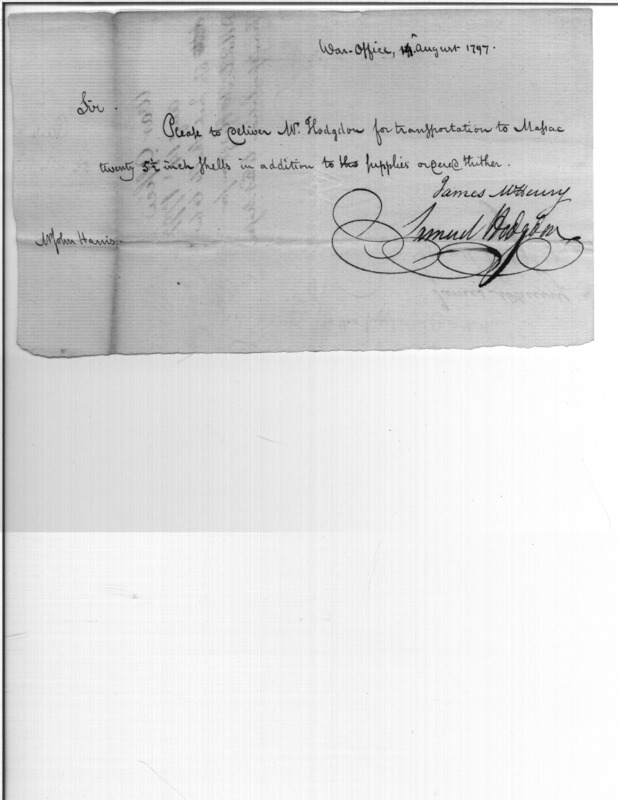 War-Office, 14 August 1797.
Sir.
Please to deliver Mr. Hodgdon for transportation to Massac
twenty 5½ inch shells in addition to the supplies ordered thither.
James McHenry
Samuel Hodgdon
Mr John Harris.